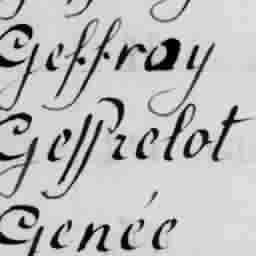 Geffray
Geffrelot
Genée